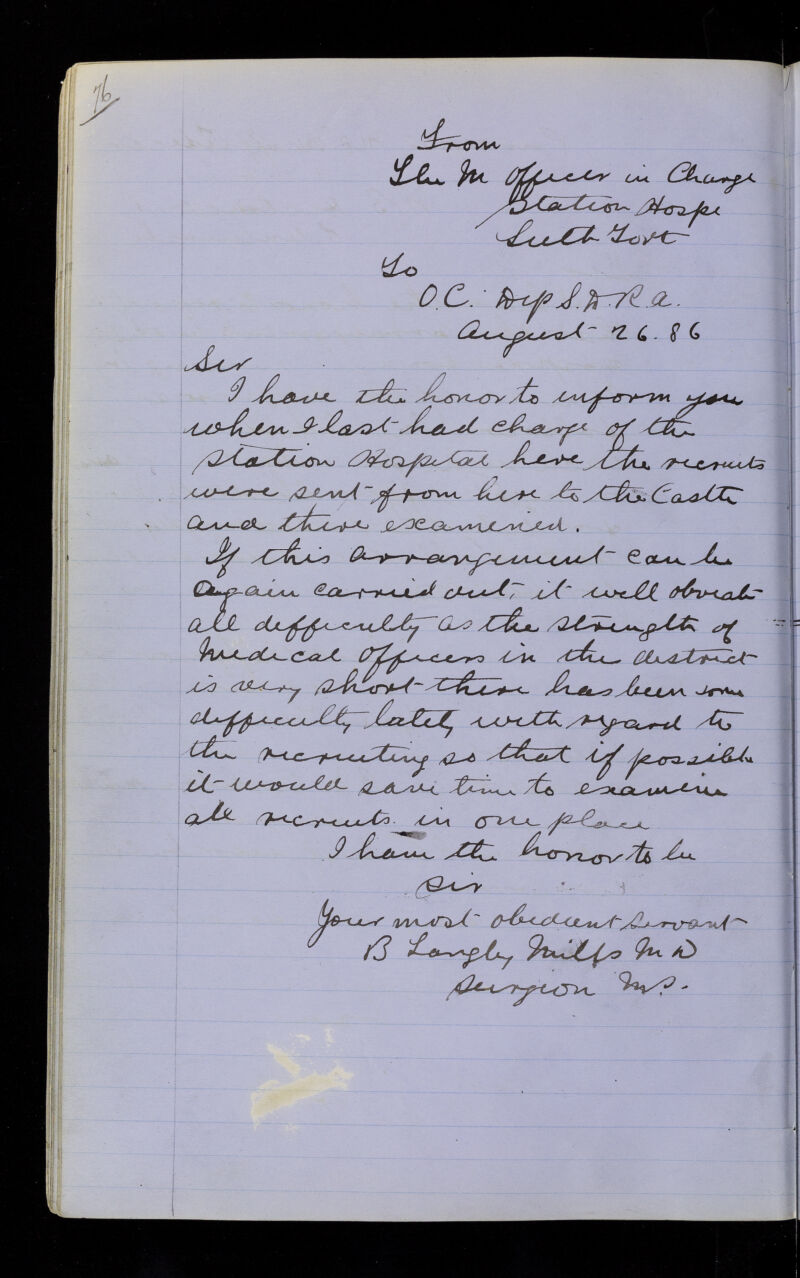 76
From
The M Officer in Charge
Station Hosp
Leith Fort
To
O.C. Dep S.D.R.A.
August 26.86
Sir
I have the honor to inform you
when I last had charge of the
Station Hospital here the recruits
were sent from here to the Castle
and there examined.
If this arrangement can be
again carried out, it will obviate
all difficulty as the strength of
Medical Officers in the district
is very short there has been some
difficulty lately with regard to
the recruiting so that if possible
it would save time to examine
all recruits in one place
I have the honor to be
Sir
Your most obedient servant
B Langley Mills M D
Surgeon M.S.